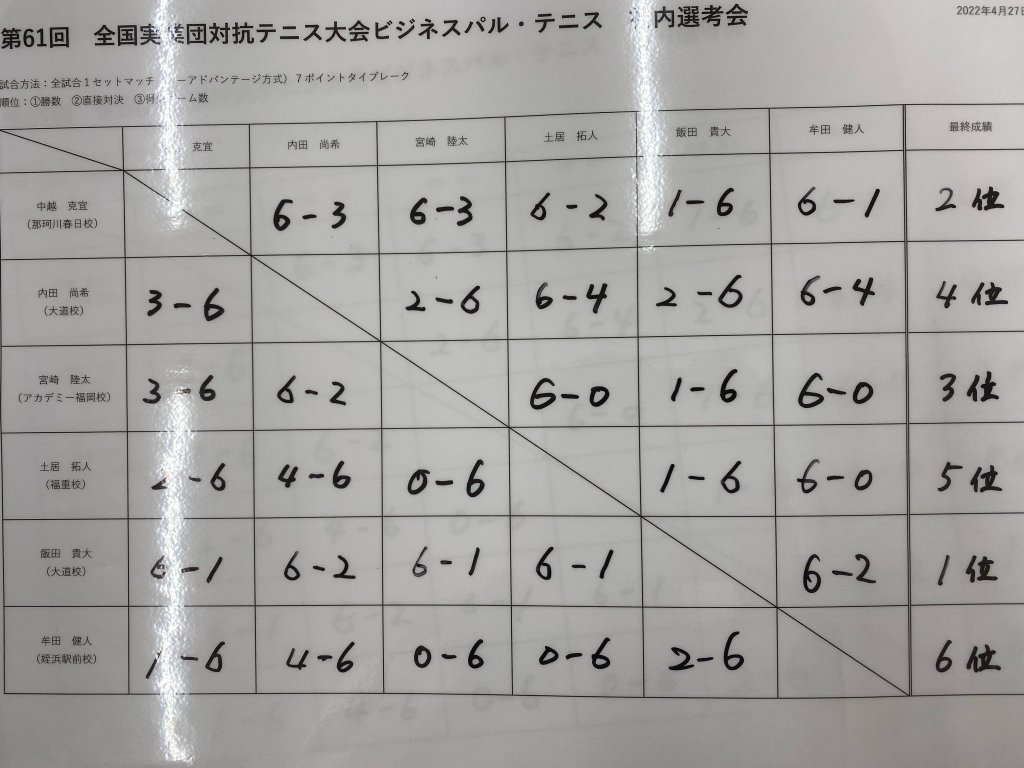 2022年4月27日
第61回 全国実業団対抗テニス大会ビジネスパル・テニス 内選考会
試合方法:全試合1セットマッチ ーアドバンテージ方式)7ポイントタイブレーク
順位:①勝数 ②直接対決 ③得 ーム数
克宜 内田 尚希 宮崎 陸太 土居 拓人 飯田 貴大 牟田 健人 最終成績
中越 克宜
(那珂川春日校)
6-3 6-3 6-2 1-6 6-1 2位
内田 尚希
(大道校)
3-6 2-6 6-4 2-6 6-4 4位
宮崎 陸太
(アカデミー福岡校)
3-6 6-2 6-0 1-6 6-0 3位
土居 拓人
(福重校)
2-6 4-6 0-6 1-6 6-0 5位
飯田 貴大
(大道校)
6-1 6-2 6-1 6-1 6-2 1位
牟田 健人
(姪浜駅前校)
1-6 4-6 0-6 0-6 2-6 6位